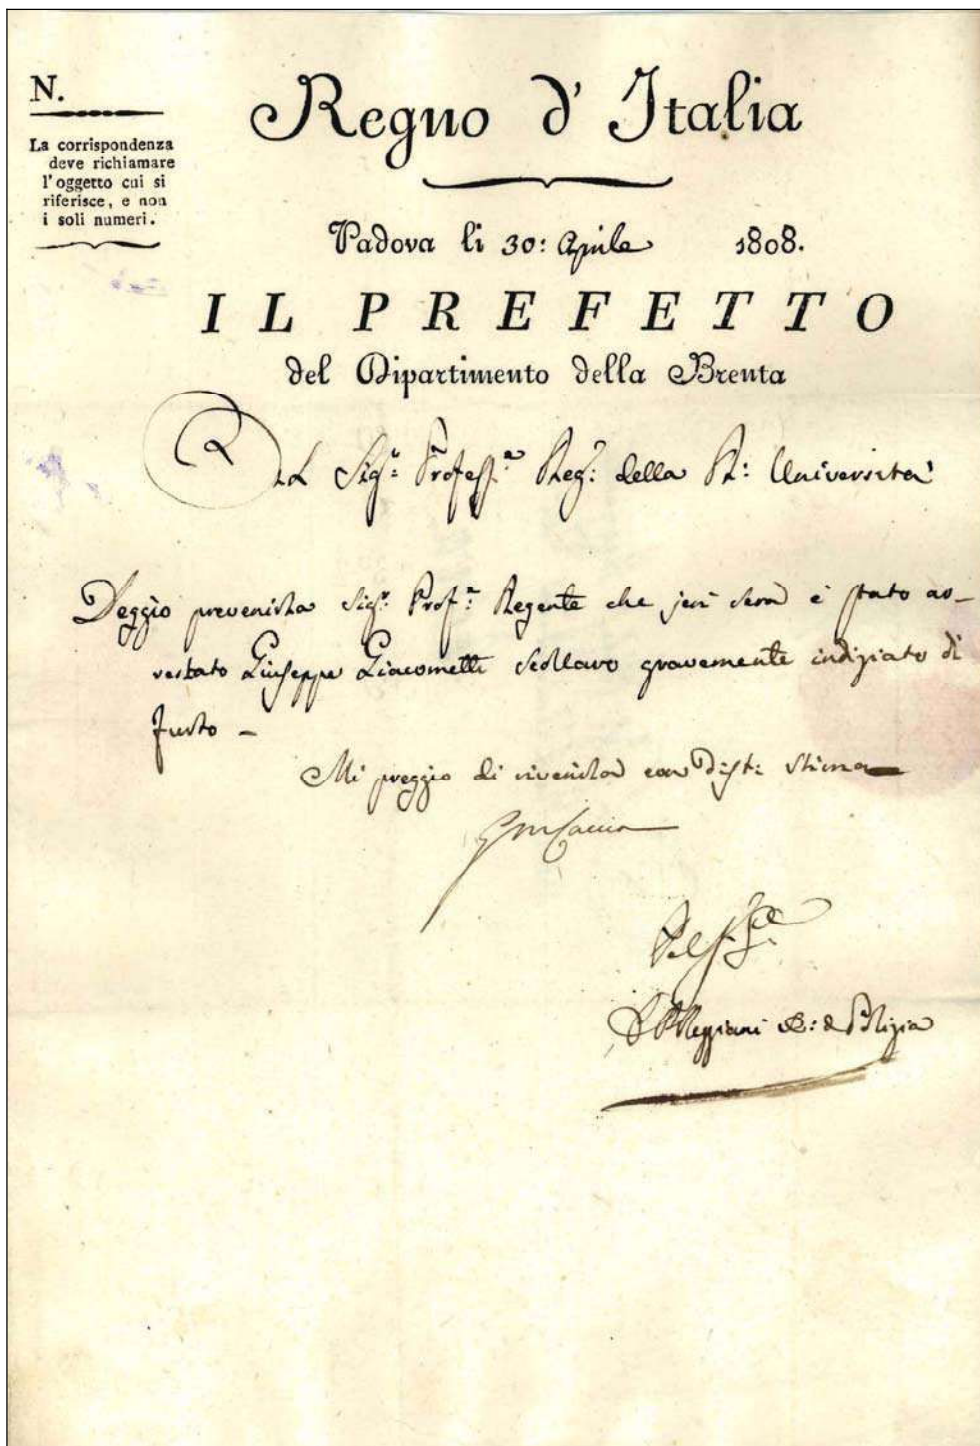 N.
La corrispondenza
deve richiamare
l'oggetto cui si
riferisce, e non
i soli numeri.
Regno d'Italia
Padova li 30: Aprile 1808.
IL PREFETTO
del Dipartimento della Brenta
Al Sig.r Profess.r Reg: della R: Università
Deggio prevenirla Sig.r Prof.r Regente che jeri sera è stato ar-
restato Giuseppe Giacometti Scollaro gravemente indiziato di
furto -
Mi preggio di riverirla con dist: stima
Polizia